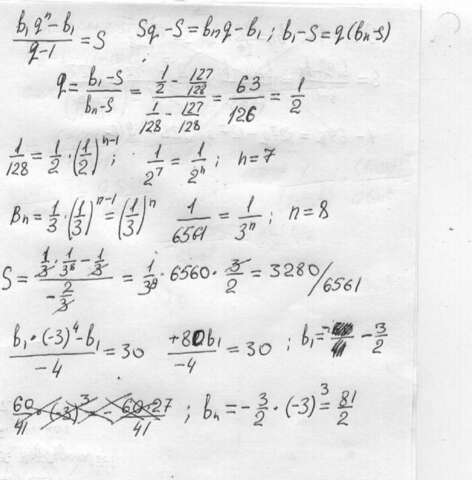 (b₁qⁿ - b₁)/(q-1) = S   Sq - S = bₙq - b₁ ; b₁ - S = q(bₙ - S)
q = (b₁ - S)/(bₙ - S) = (1/2 - 127/128)/(1/128 - 127/128) = 63/126 = 1/2
1/128 = 1/2 · (1/2)ⁿ⁻¹ ;   1/2⁷ = 1/2ⁿ ;   n = 7
Bₙ = 1/3 · (1/3)ⁿ⁻¹ = (1/3)ⁿ   1/6561 = 1/3ⁿ ;   n = 8
S = (1/3 · 1/3⁸ - 1/3)/(-2/3) = 1/3⁹ · 6560 · 3/2 = 3280/6561
(b₁ · (-3)⁴ - b₁)/(-4) = 30   +80b₁/(-4) = 30 ; b₁ = -3/2
60/41 · (-3)³ = - 60·27/41 ; bₙ = -3/2 · (-3)³ = 81/2